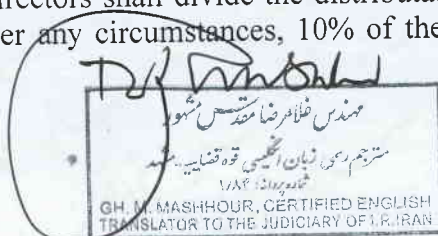 irectors shall divide the distributa
er any circumstances, 10% of the
مهندس غلامرضا مقدس مشهور
مترجم رسمی زبان انگلیسی قوه قضاییه - مشهد
شماره پروانه: ۱/۸۴
GH. M. MASHHOUR, CERTIFIED ENGLISH
TRANSLATOR TO THE JUDICIARY OF I.R. IRAN